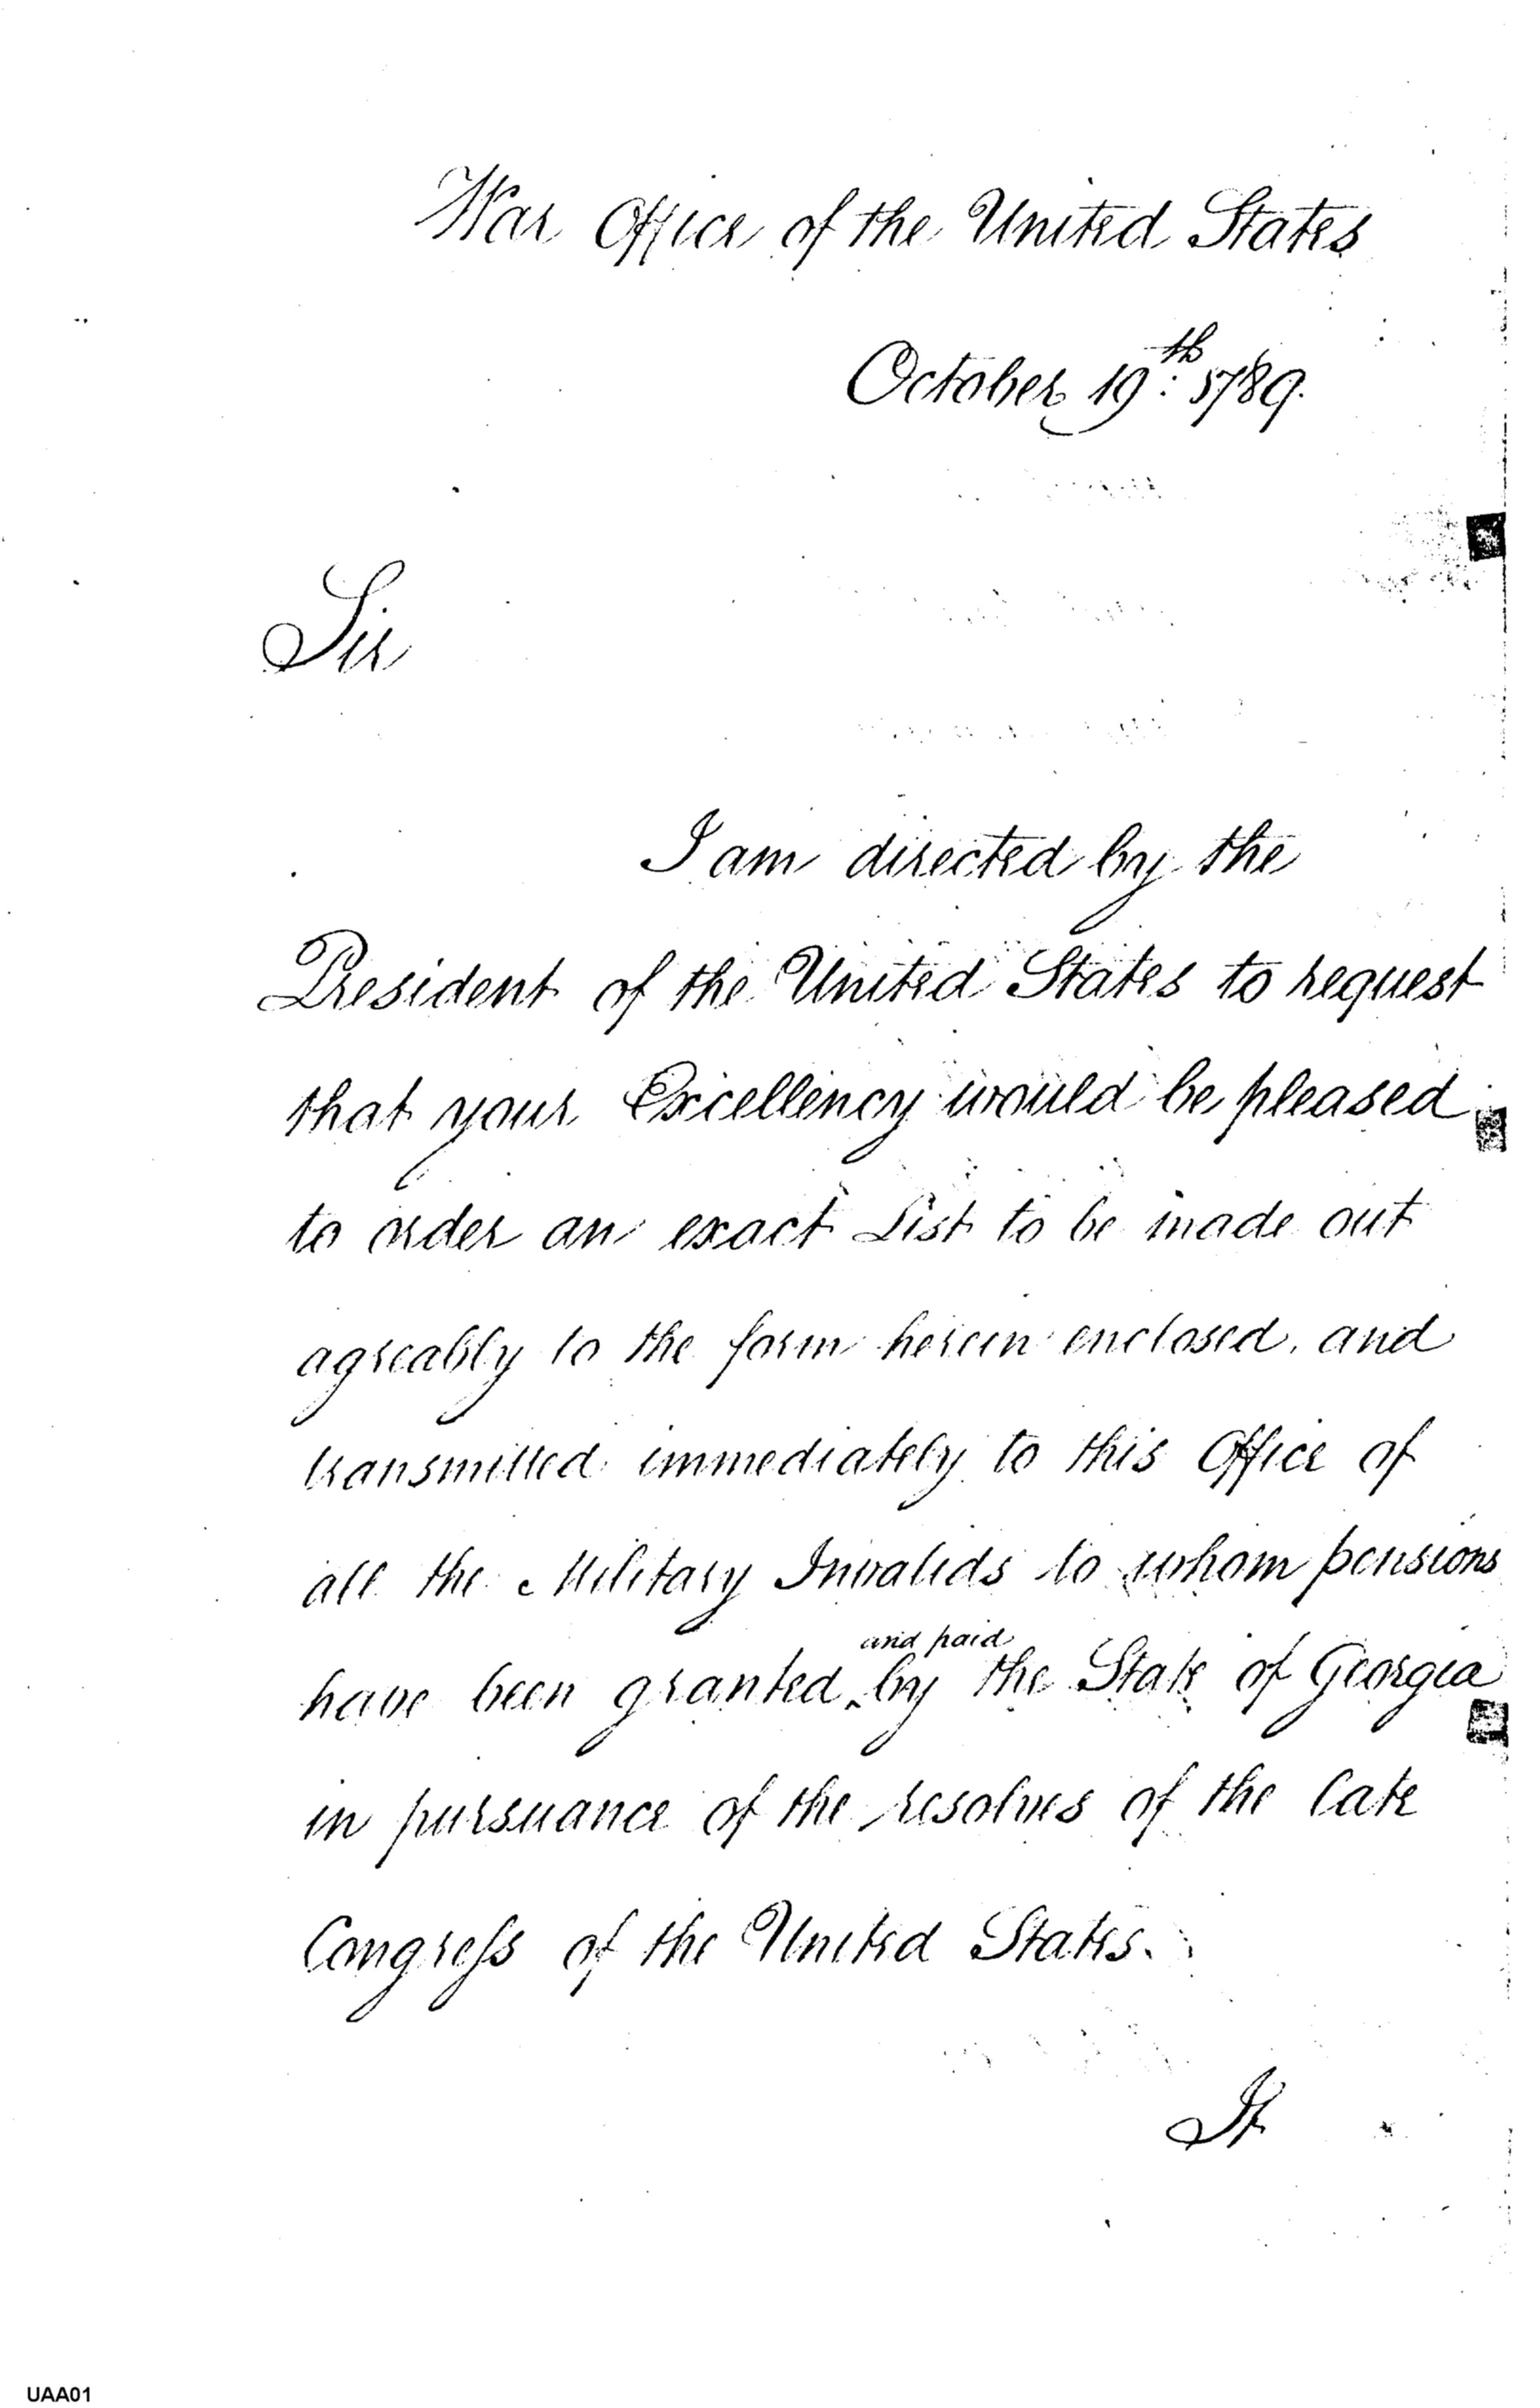 War Office of the United States
October 19th: 1789.
Sir
I am directed by the
President of the United States to request
that your Excellency would be pleased
to order an exact List to be made out
agreably to the form herein enclosed, and
transmitted immediately to this Office of
all the Military Invalids to whom pensions
and paid
have been granted ‸ by the State of Georgia
in pursuance of the resolves of the late
Congreſs of the United States.
It
UAA01